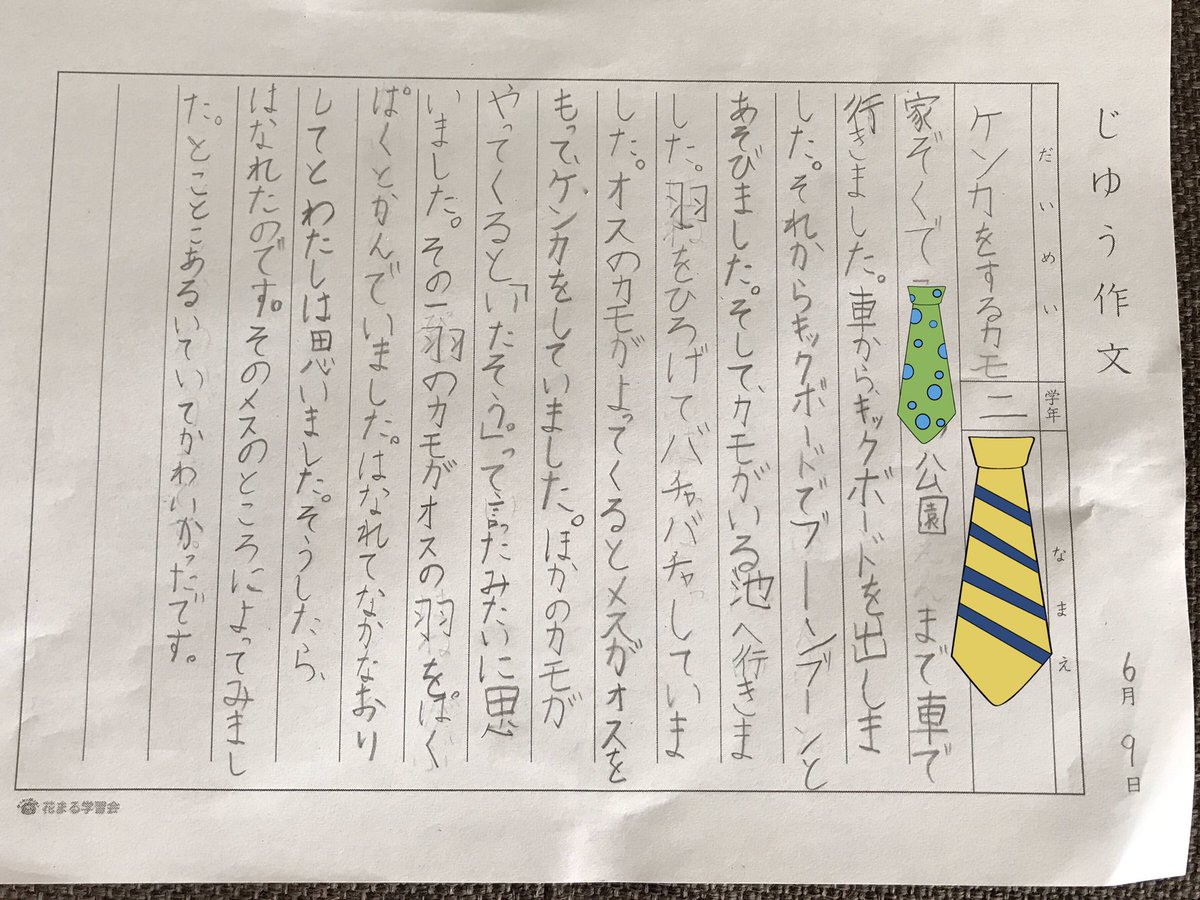 じゆう作文
6月9日
だいめい
ケンカをするカモ
学年
二
なまえ
家ぞくで「公園まで車で
行きました。車から、キックボードを出しま
した。それからキックボードでブーンブーンと
あそびました。そして、カモがいる池へ行きま
した。羽をひろげてバチャバチャしていま
した。オスのカモがよってくるとメスがオスを
もって、ケンカをしていました。ほかのカモが
やってくると「いたそう。」って言たみたいに思
いました。その一羽のカモがオスの羽をぱく
ぱくとかんでいました。はなれてなかなおり
してとわたしは思いました。そうしたら、
はなれたのです。そのメスのところによってみまし
た。とことこあるいていてかわいかったです。
花まる学習会